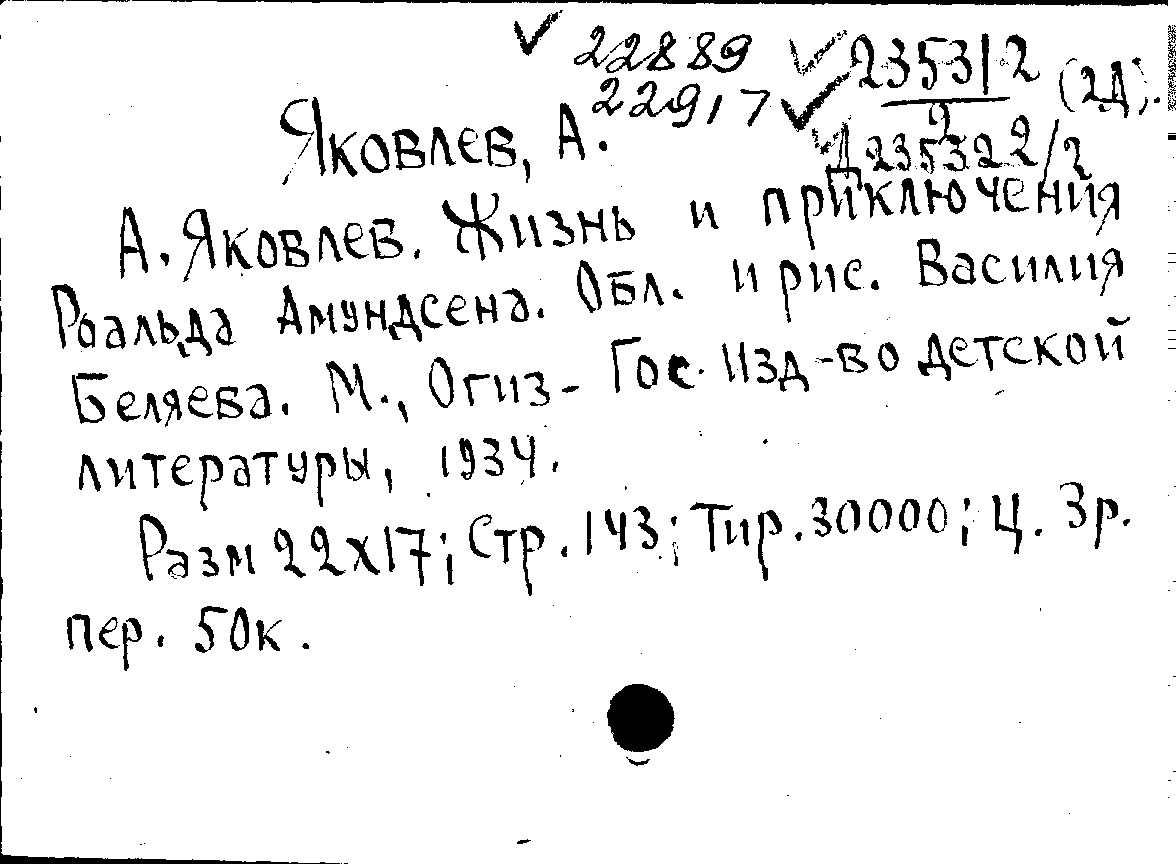 ✓ 22889 ✓ 235312/2 (2Д).
22917 ✓ Д235322/2
Яковлев, А.
А. Яковлев. Жизнь и приключения
Роальда Амундсена. Обл. и рис. Василия
Беляева. М., Огиз- Гос. изд-во детской
литературы, 1934.
Разм 22х17; Стр. 143; Тир. 30000; Ц. 3р.
пер. 50к.